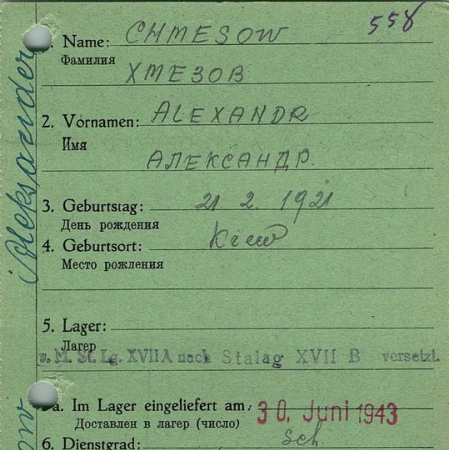 558
1. Name: CHMESOW
Фамилия ХМЕЗОВ
2. Vornamen: ALEXANDR
Имя
АЛЕКСАНДР.
3. Geburtstag: 21 2. 1921
День рождения
4. Geburtsort: Kiew
Место рождения
5. Lager:
Лагер
v. M. St. Lg. XVIIA nach Stalag XVII B versetzt.
a. Im Lager eingeliefert am: 30. Juni 1943
Доставлен в лагер (число)
6. Dienstgrad: Sch.
Aleksander
ow